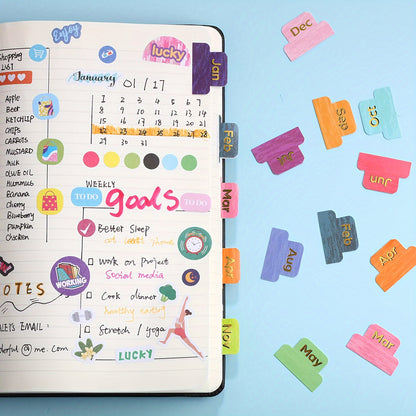 Enjoy
Shopping
LIST
Apple
Beer
KETCHUP
CHIPS
CARROTS
MUSTARD
MILK
OLIVE OIL
Hummus
Banana
Cherry
Blueberry
Pumpkin
Chicken
NOTES
@me.com
lucky
January 01/17
1 2 3 4 5 6 7
8 9 10 11 12 13 14
15 16 17 18 19 20 21
22 23 24 25 26 27 28
29 30 31
WEEKLY
TO DO goals TO DO
Better Sleep
Work on Project
Social media
WORKING
Cook dinner
healthy eating
Stretch / yoga
LUCKY
Jan
Feb
Mar
Apr
Nov
Dec
Sep
Oct
Jul
Jun
Mar
Feb
Aug
Apr
May
Nov